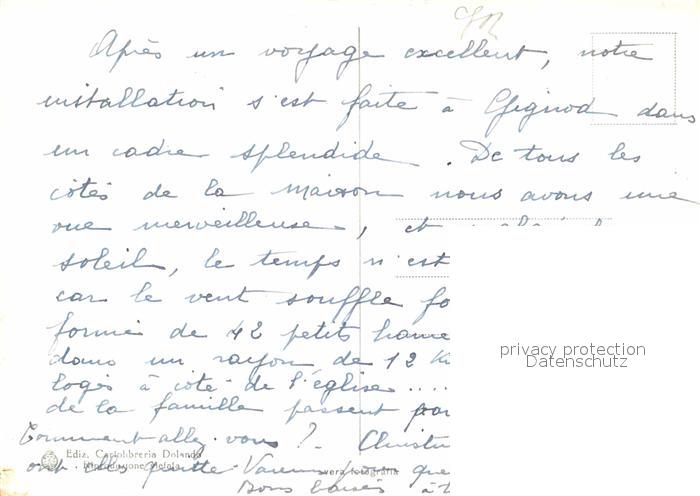 Après un voyage excellent, notre
installation s'est faite à Gignod dans
un cadre splendide. De tous les
côtés de la maison nous avons une
vue merveilleuse, et
soleil, le temps n'est
car le vent souffle fo
formé de 42 petits hame
dans un rayon de 12 K
logés à côté de l'église....
de la famille passent par
privacy protection
Datenschutz
Comment allez-vous? - Christi
Ediz. Cartolibreria Dolando
ont elles quitté que
vera fotografia
Bons baisers à t